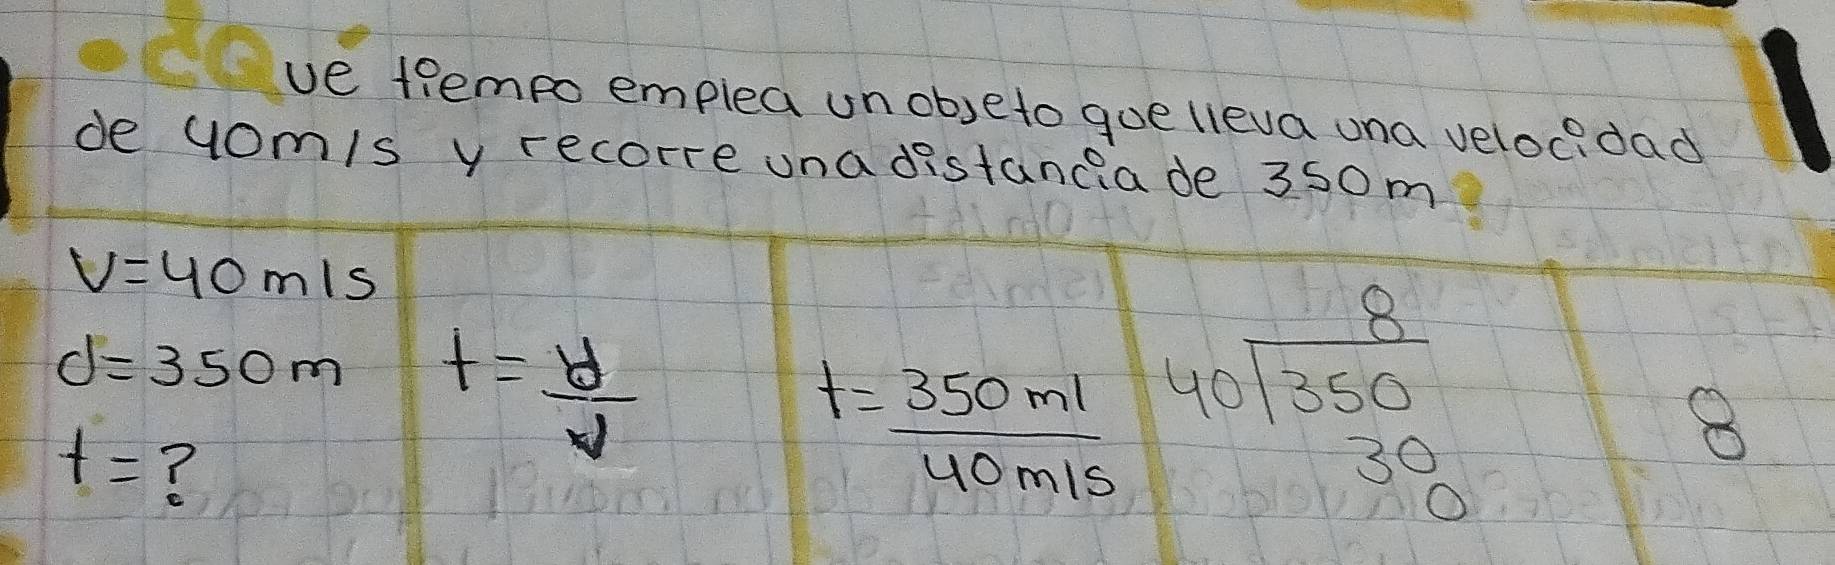 • ¿Qué tiempo emplea un objeto que lleva una velocidad
de 40m/s y recorre una distancia de 350m?
V=40m/s
d=350m
t=?
t=d/v
t=350ml
40m/s
8
40/350
30
0
8